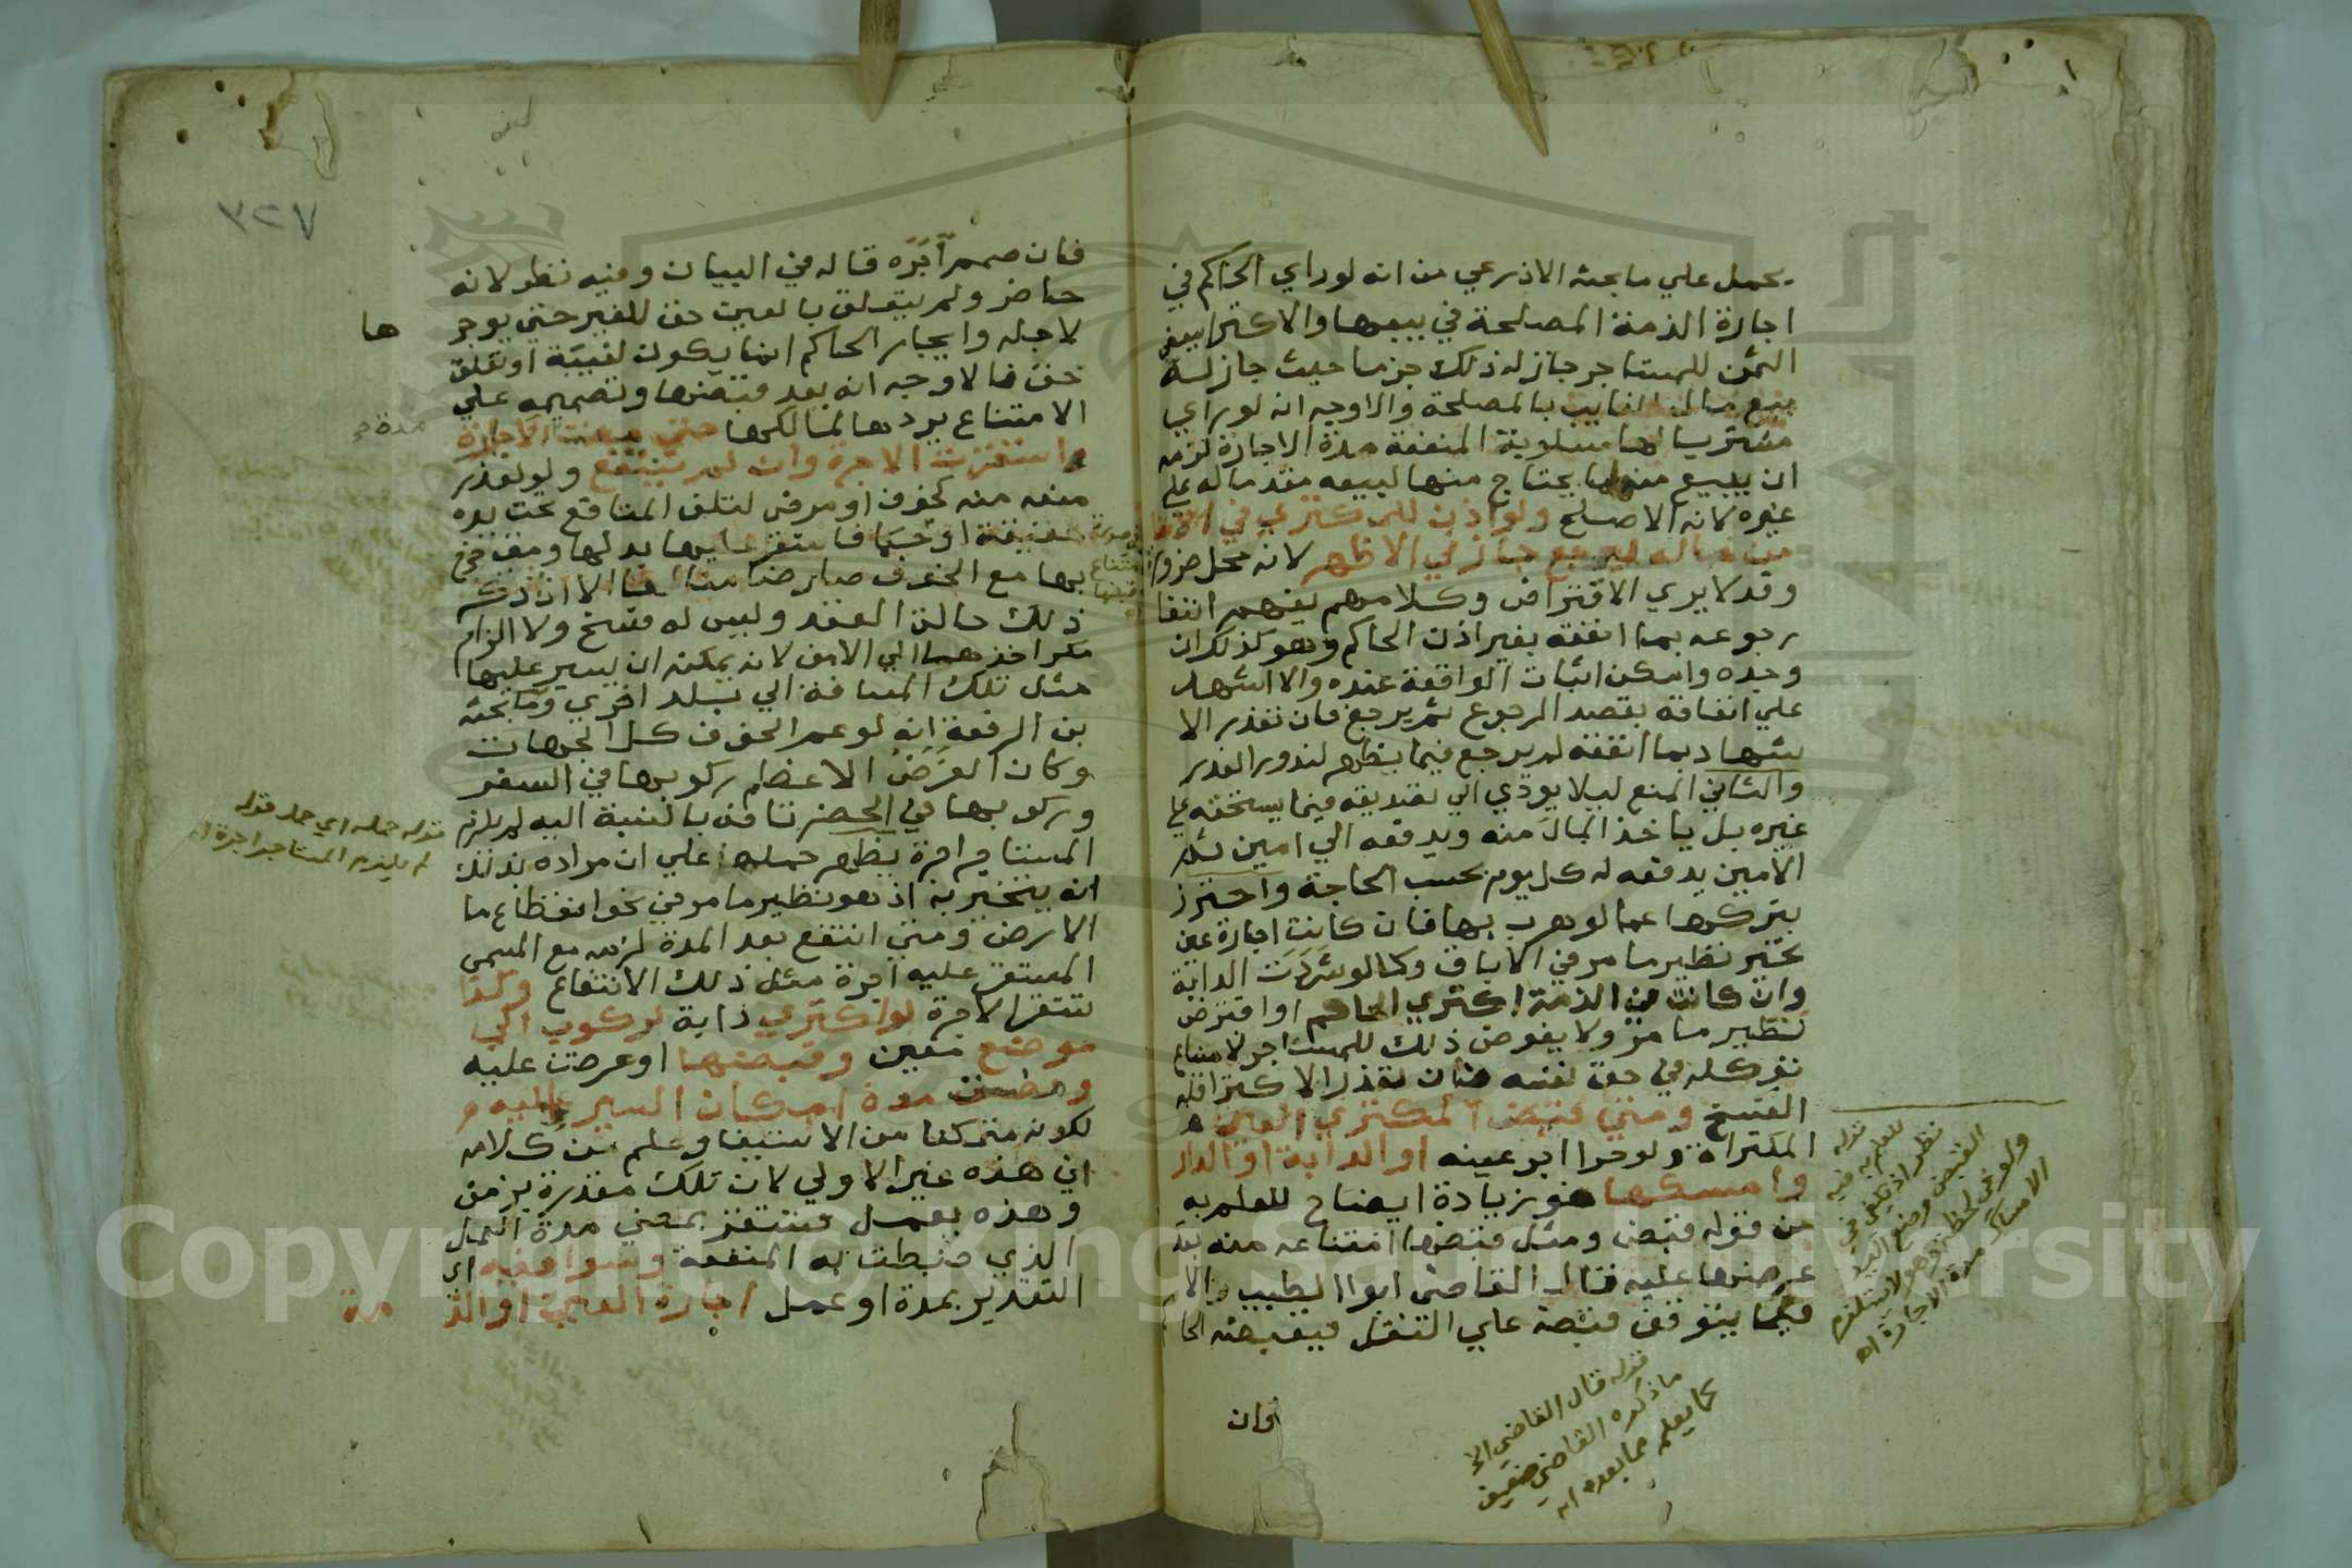 يحمل علي ما بحثه الاذرعي من انه لو راي الحاكم في
اجارة الذمة المصلحة في بيعها والاكترا ببعض
الثمن للمستاجر جاز له ذلك جزما حيث جاز له
بيع مال الغايب بالمصلحة والاوجه انه لو راي
مشتريا لها مسلوبة المنفعة مدة الاجارة لزمه
ان يبيع منها ما يحتاج منها لبيعه مقدما له علي
غيره لانه الاصلح ولو اذن للمكتري في الانفاق
من ماله ليرجع جاز في الاظهر لانه محل ضرورة
وقد لا يري الاقتراض وكلامهم يفهم انتفا
رجوعه بما انفقه بغير اذن الحاكم وهو كذلك ان
وجده وامكن اثبات الواقعة عنده والا اشهد
علي انفاقه بقصد الرجوع ثم يرجع فان تعذر الا
شهاد بما انفقه لم يرجع فيما يظهر لندور العذر
والثاني المنع ليلا يودي الي تصديقه فيما يستحقه علي
غيره بل ياخذ المال منه ويدفعه الي امين ثم
الامين يدفعه له كل يوم بحسب الحاجة واحترز
بتركها عما لو هرب بها فان كانت اجارة عين
تخير نظير ما مر في الاباق وكما لو شردت الدابة
وان كانت في الذمة اكتري الحاكم او اقترض
نظير ما مر ولا يفوض ذلك للمستاجر لامتناع
توكله في حق نفسه فان تعذر الاكترا فله
الفسخ ومتي قبض المكتري العين
المكتراة ولو حرا اجر عينه او الدابة او الدار
وامسكها هو زيادة ايضاح للعلم به
من قوله قبض ومثل قبضها امتناعه منه بعد
عرضها عليه قال القاضي ابو الطيب الا
فيما يتوقف قبضه علي النقل فيقبضه الحا
فان
قوله
للعلم به فيه
نظر اذ يكفي في
القبض وضع اليد
ولو في لحظة وهو لا يستلزم
الامساك مدة الاجارة اه
قوله قال القاضي الخ
ما ذكره القاضي ضعيف
كما يعلم مما بعده اه
٣٢٧
فان صمم آجَرَه قاله في البيان وفيه نظر لانه
حاضر ولم يتعلق بالعين حق للغير حتي يوجر
لاجله وايجار الحاكم انما يكون لغيبة او تعلق
حق فالاوجه انه بعد قبضها وتصميمه علي
الامتناع يردها لمالكها حتي مضت الاجارة
استقرت الاجرة وان لم ينتفع ولو لعذر
منعه منه كخوف او مرض لتلف المنافع تحت يده
حقيقة او حكما فاستقر عليه بدلها ومتي خرج
بها مع الخوف صار ضامنا لها الا ان ذكر
ذلك حالة العقد وليس له فسخ ولا الزام
مكر اخذها الي الامن لانه يمكنه ان يسير عليها
مثل تلك المسافة الي بلد اخري وما بحثه
بن الرفعة انه لو عم الخوف كل الجهات
وكان الغرض الاعظم ركوبها في السفر
وركوبها في الحضر تافه بالنسبة اليه لم يلزم
المستاجر اجرة يظهر حمله علي ان مراده بذلك
انه يتخير به اذ هو نظير ما مر في نحو انقطاع ما
الارض ومتي انتفع بعد المدة لزمه مع المسمي
المستقر عليه اجرة مثل ذلك الانتفاع وكذا
تستقر الاجرة لو اكتري دابة لركوب الي
موضع معين وقبضها او عرضت عليه
ومضت مدة امكان السير اليه
لكونه متمكنا من الاستيفا وعلم من كلامه
ان هذه غير الاولي لان تلك مقدرة بزمن
وهذه بعمل فتستقر بمضي مدة العمل
الذي ضبطت به المنفعة وسوا فيه اي
التقدير بمدة او عمل اجارة العين او الذ مة
ها
مدة
قوله حمله اي حمل قوله
لم يلزم المستاجر اجرة اه
Copyright © King Saud University